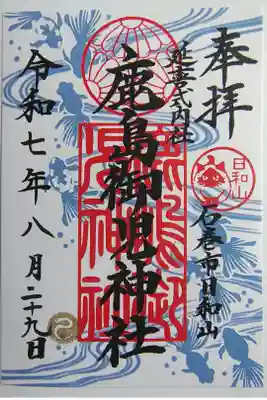 奉拝
日和山
石巻市日和山
延喜式内社
鹿島御児神社
令和七年八月二十九日